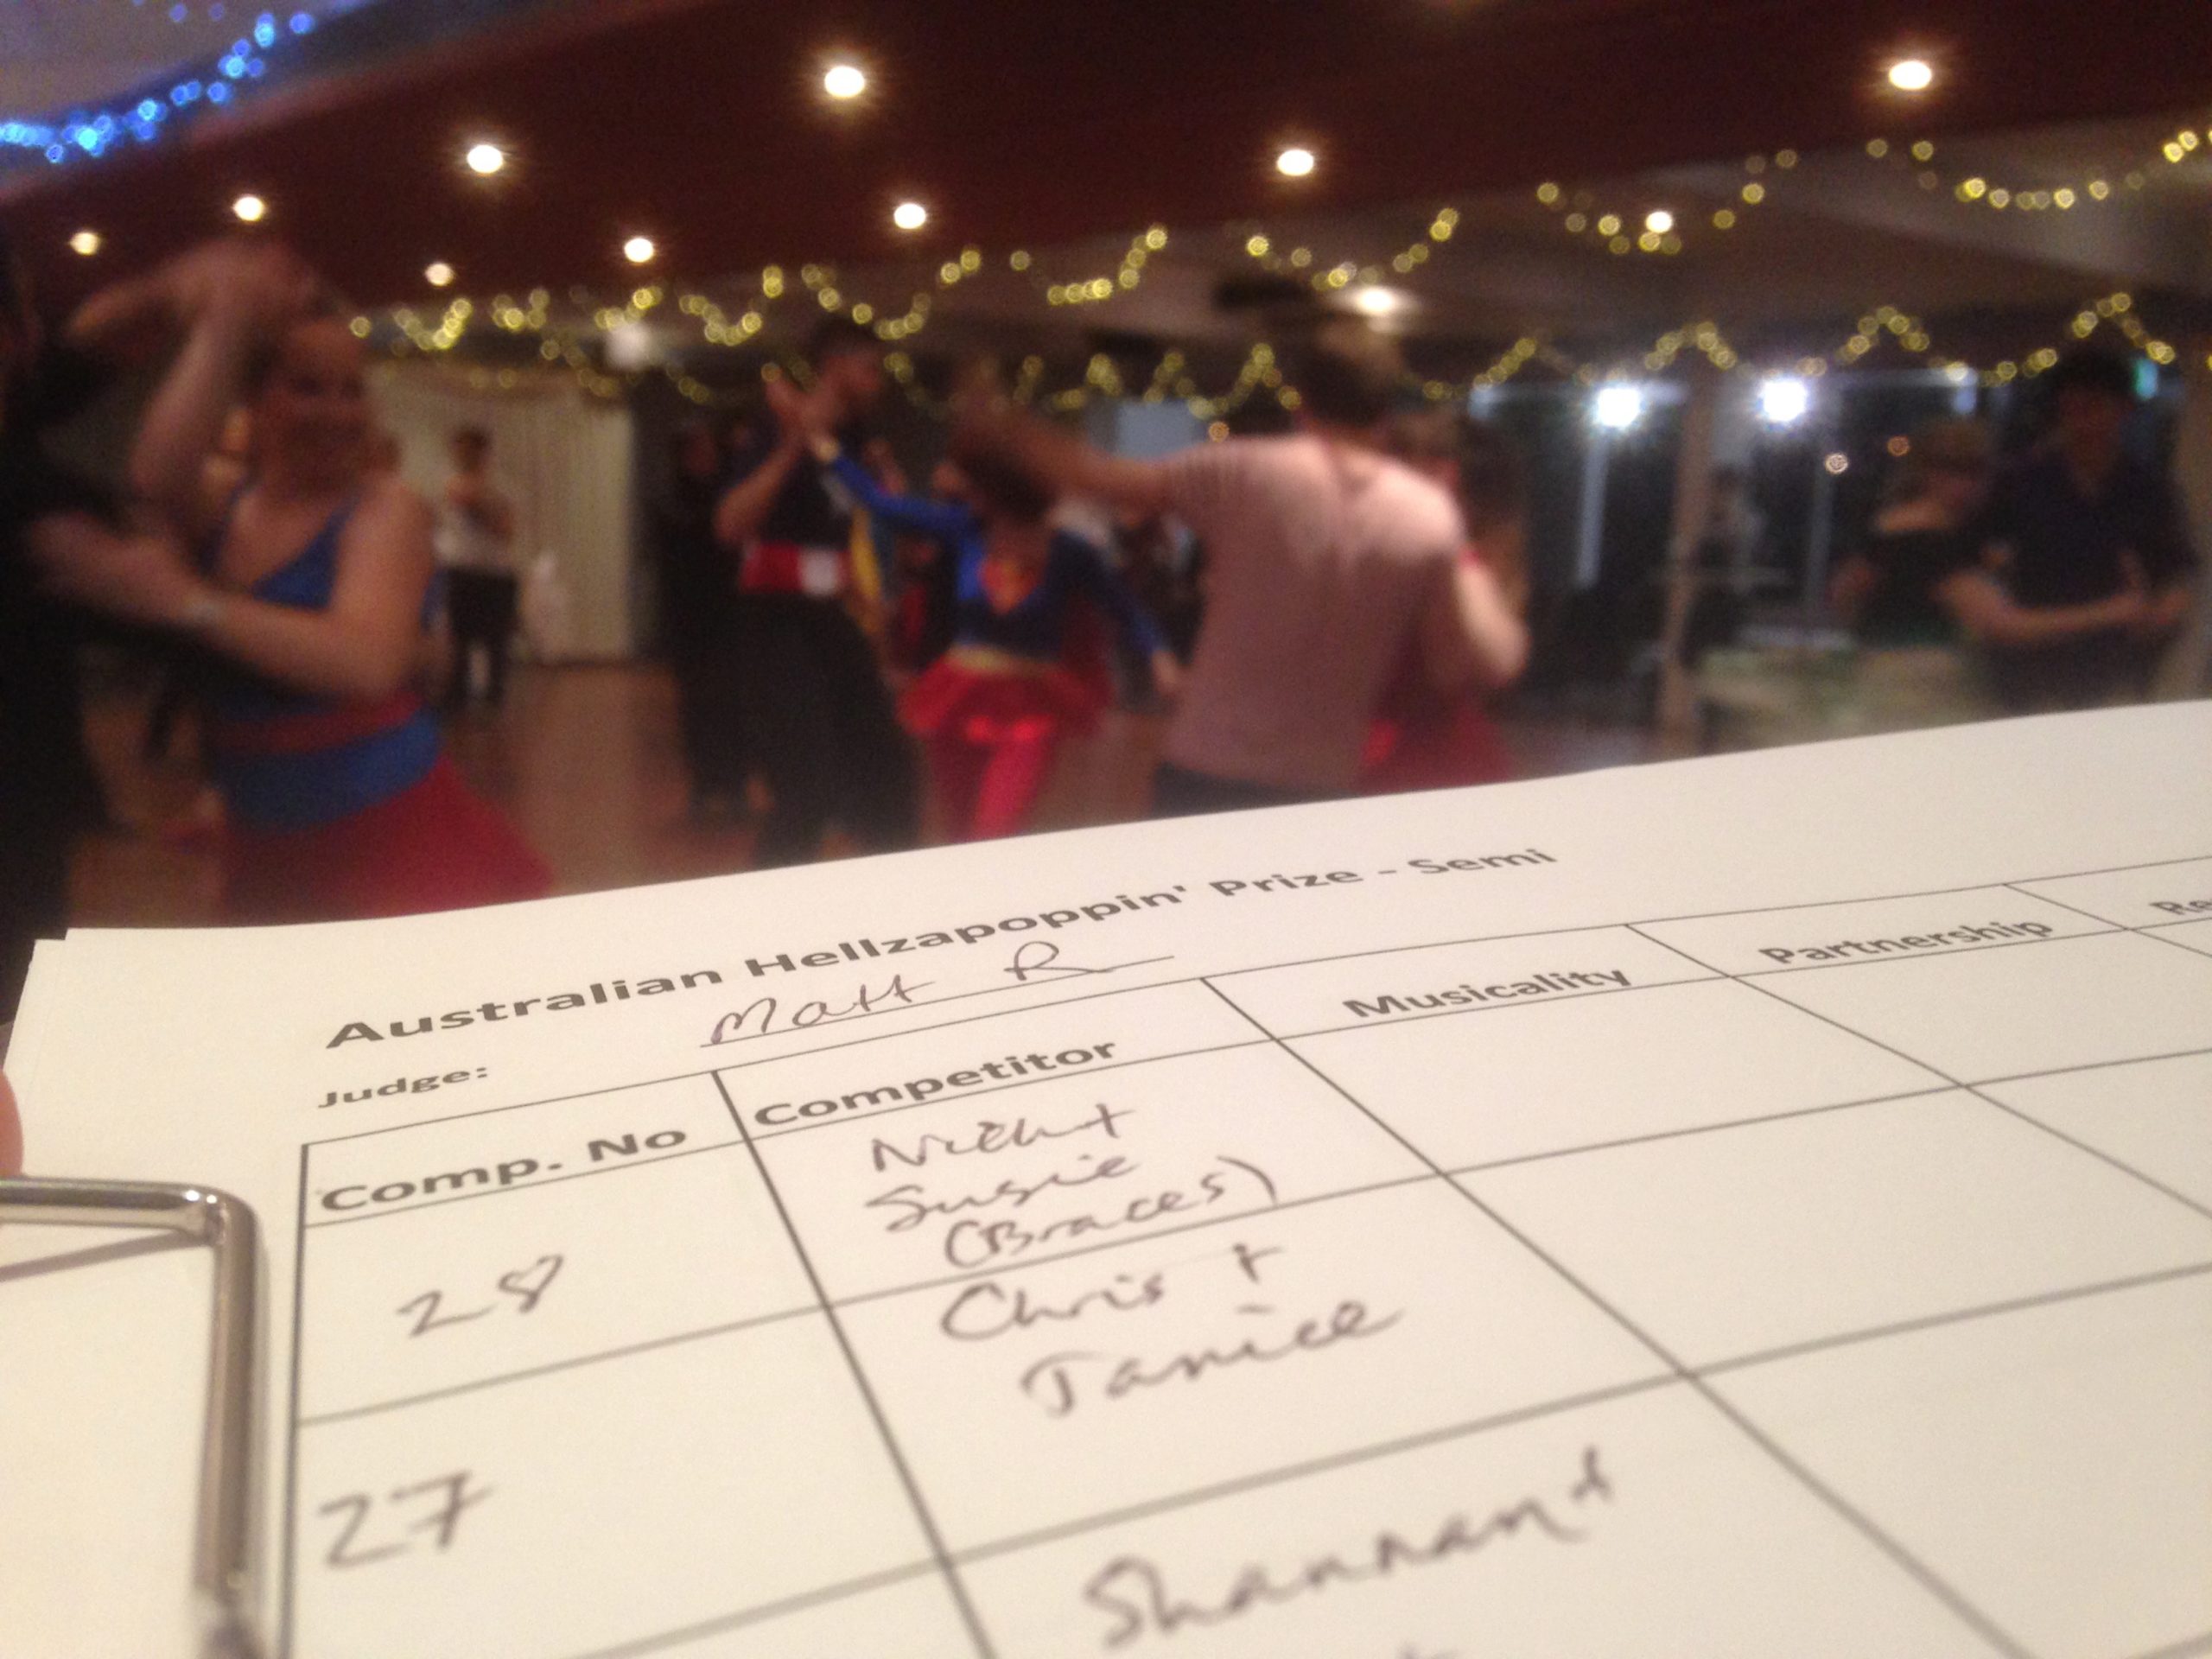 Australian Hellzapoppin' Prize - Semi
Judge: Matt R
Comp. No Competitor Musicality Partnership
28
Susie
(Braces)
27
Chris +
Janice
Shannan +